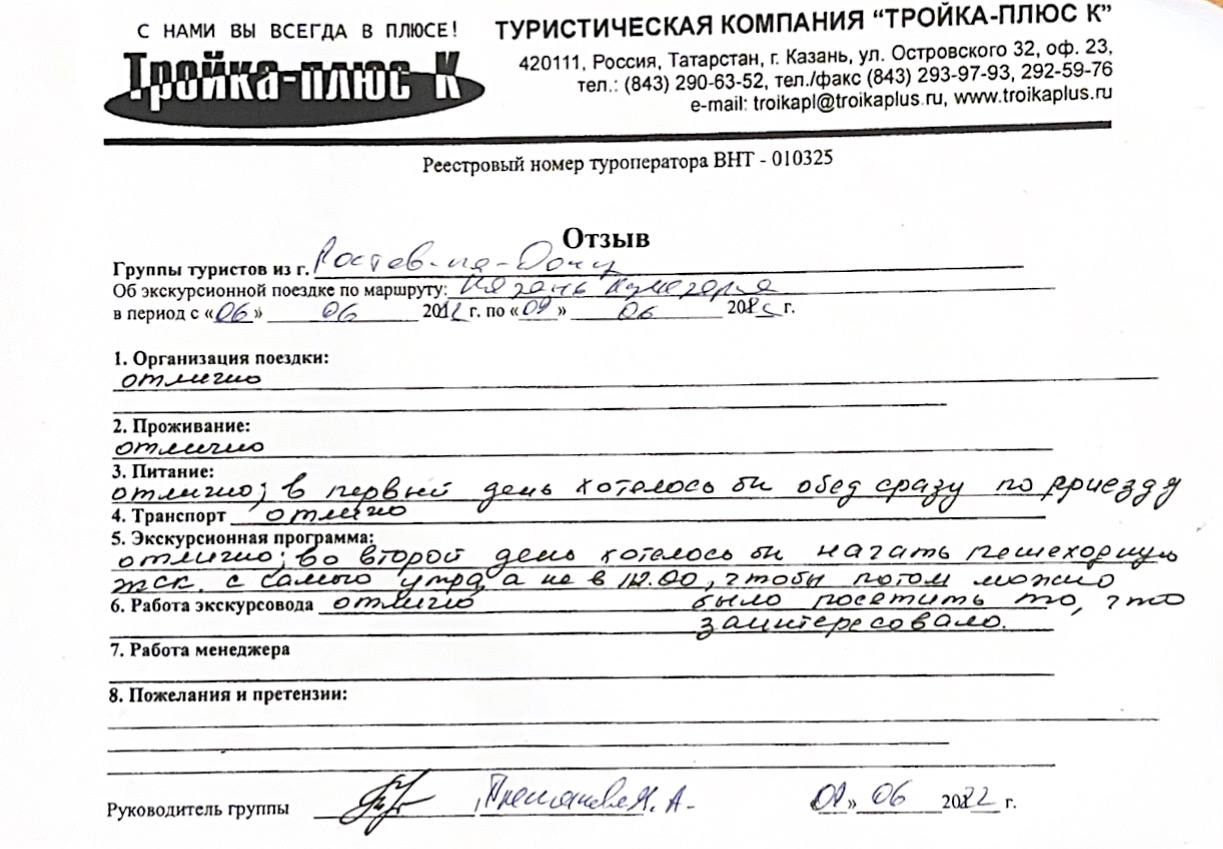 С НАМИ ВЫ ВСЕГДА В ПЛЮСЕ!
Тройка-плюс К
ТУРИСТИЧЕСКАЯ КОМПАНИЯ “ТРОЙКА-ПЛЮС К”
420111, Россия, Татарстан, г. Казань, ул. Островского 32, оф. 23,
тел.: (843) 290-63-52, тел./факс (843) 293-97-93, 292-59-76
e-mail: troikapl@troikaplus.ru, www.troikaplus.ru
Реестровый номер туроператора ВНТ - 010325
Отзыв
Группы туристов из г. Ростов-на-Дону
Об экскурсионной поездке по маршруту: Казань
в период с «06» 06 г. по «09» 06 г.
1. Организация поездки:
отлично
2. Проживание:
отлично
3. Питание:
отлично; в первый день хотелось бы обед сразу по приезду
4. Транспорт отлично
5. Экскурсионная программа:
отлично; во второй день хотелось бы начать пешеходную
экск. с самого утра, а не в 12.00, чтобы потом можно
было посетить то, что
заинтересовало.
6. Работа экскурсовода отлично
7. Работа менеджера
8. Пожелания и претензии:
Руководитель группы А. 09» 06 2022 г.